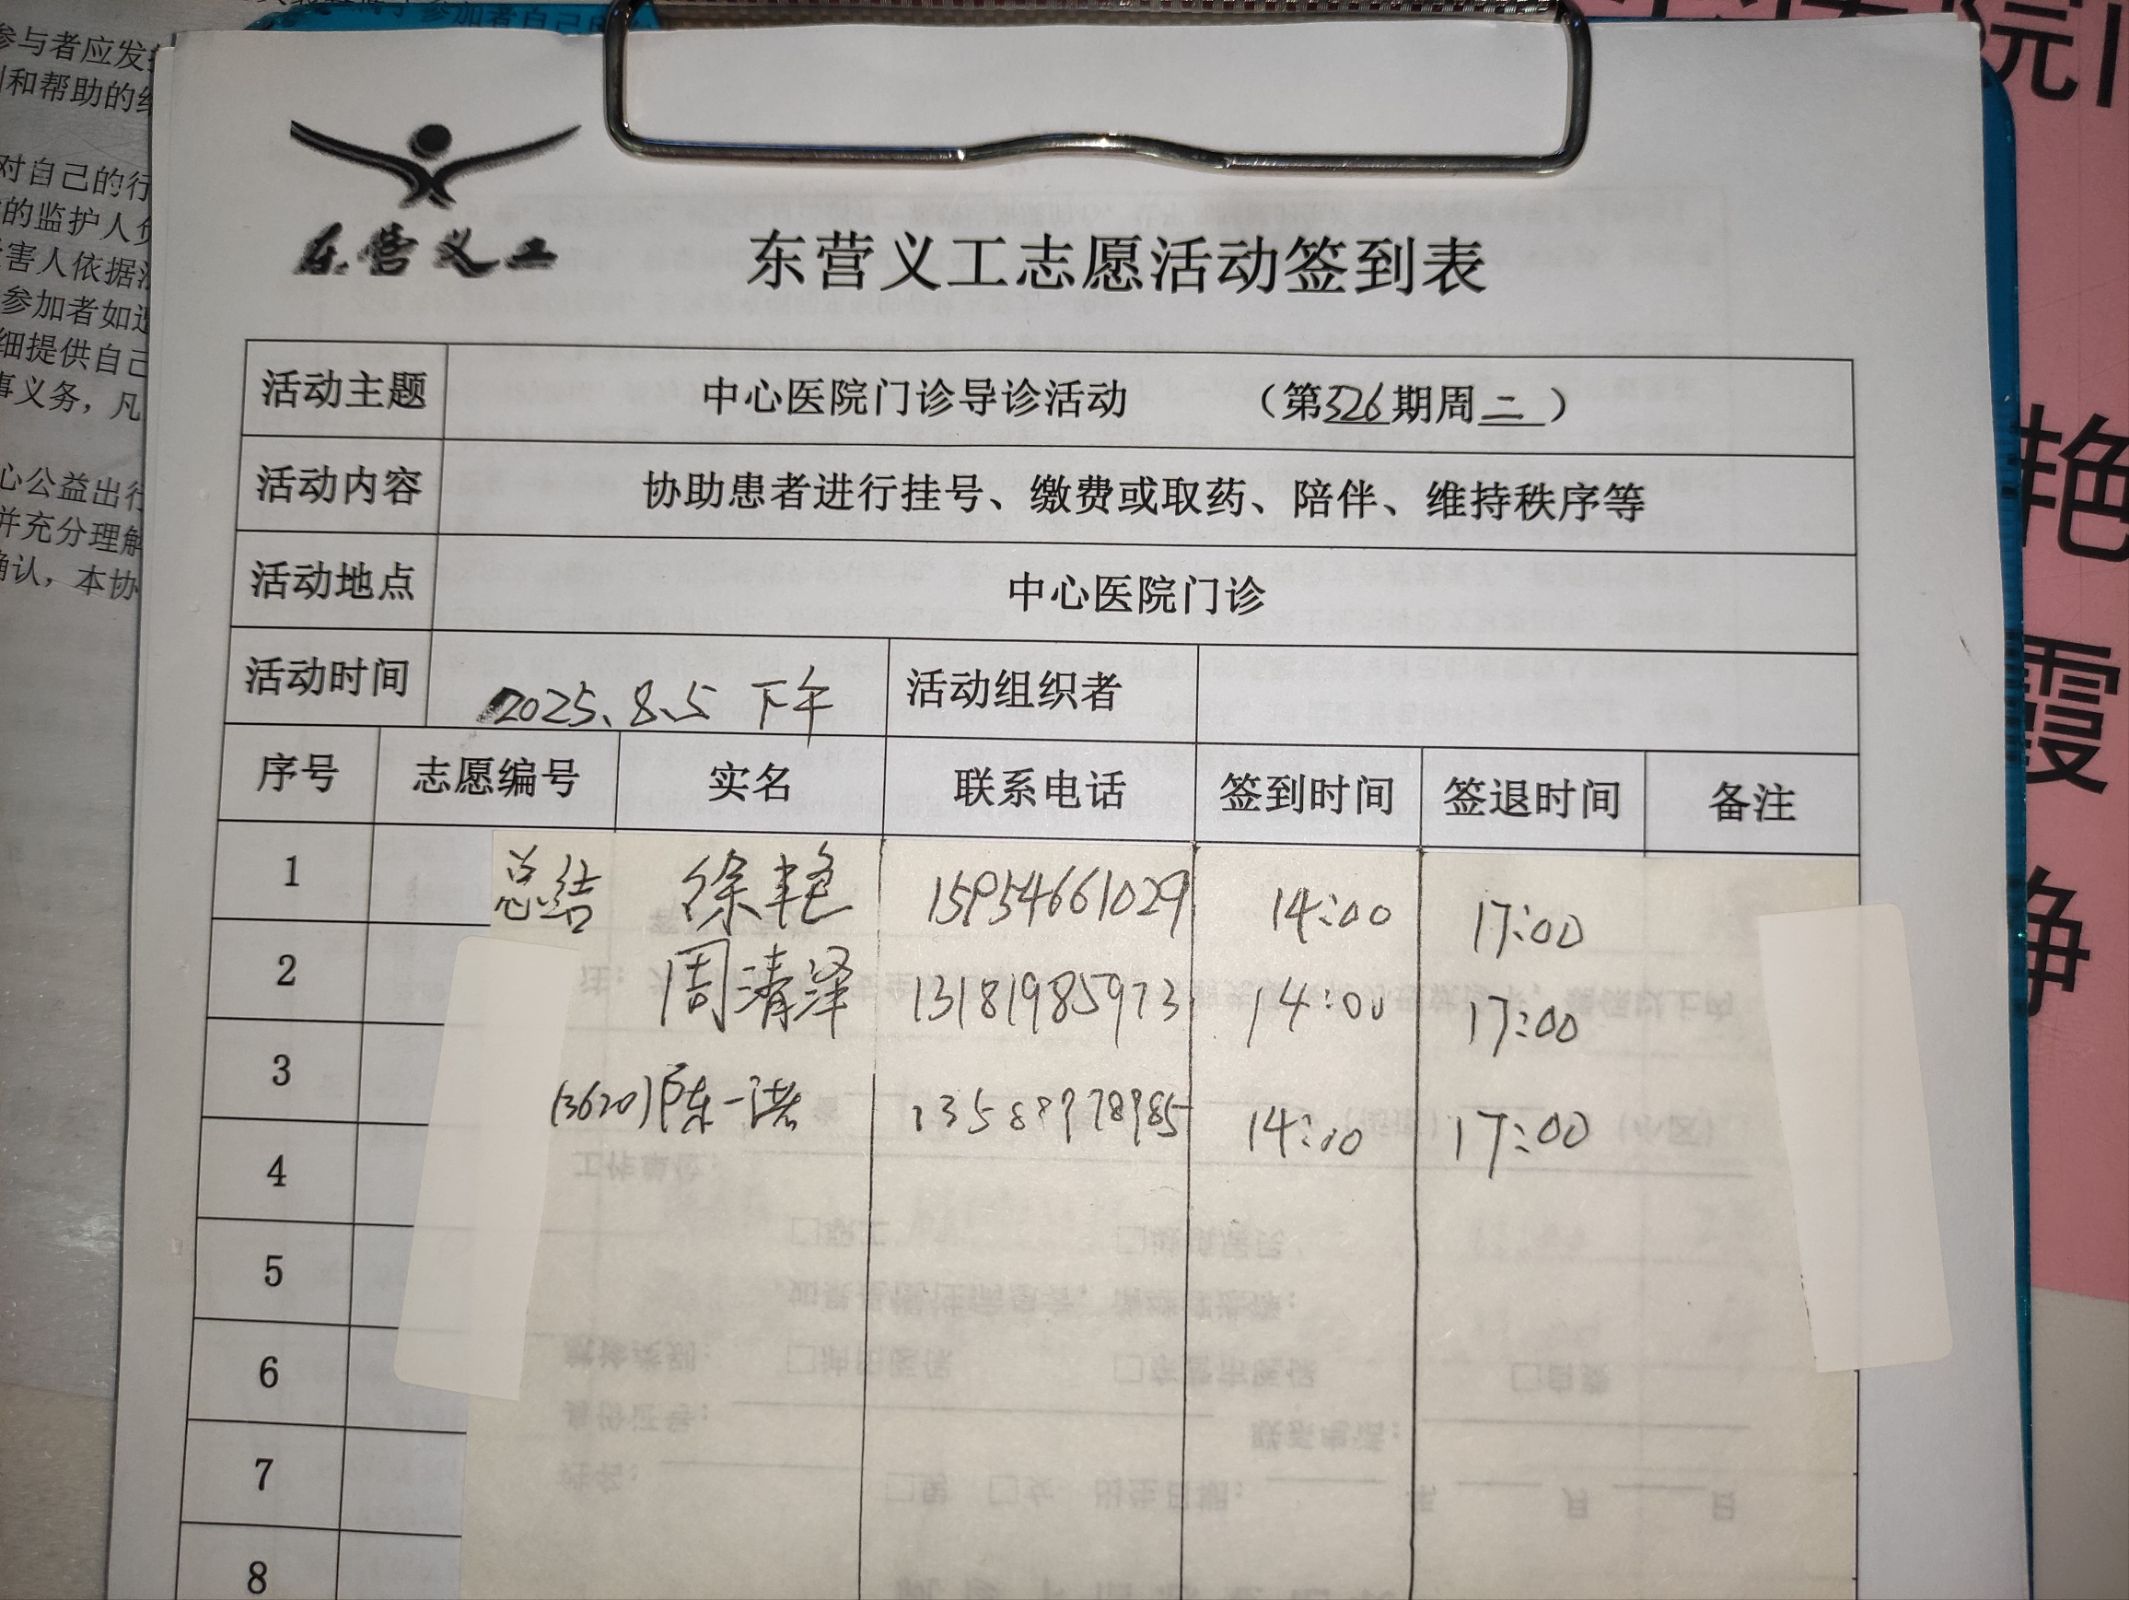 参与者应发
和帮助的
对自己的行
的监护人负
害人依据法
参加者如
细提供自己
事义务，凡
心公益出行
并充分理解
确认，本协
院门
艳
霞
东营义工
东营义工志愿活动签到表
活动主题 中心医院门诊导诊活动 （第326期周二）
活动内容 协助患者进行挂号、缴费或取药、陪伴、维持秩序等
活动地点 中心医院门诊
活动时间 2025.8.5 下午 活动组织者
序号 志愿编号 实名 联系电话 签到时间 签退时间 备注
1 总结 徐艳 15954661029 14:00 17:00
2 周清泽 13181985973 14:00 17:00
3 (3620) 陈一诺 13589978985 14:00 17:00
4
5
6
7
8